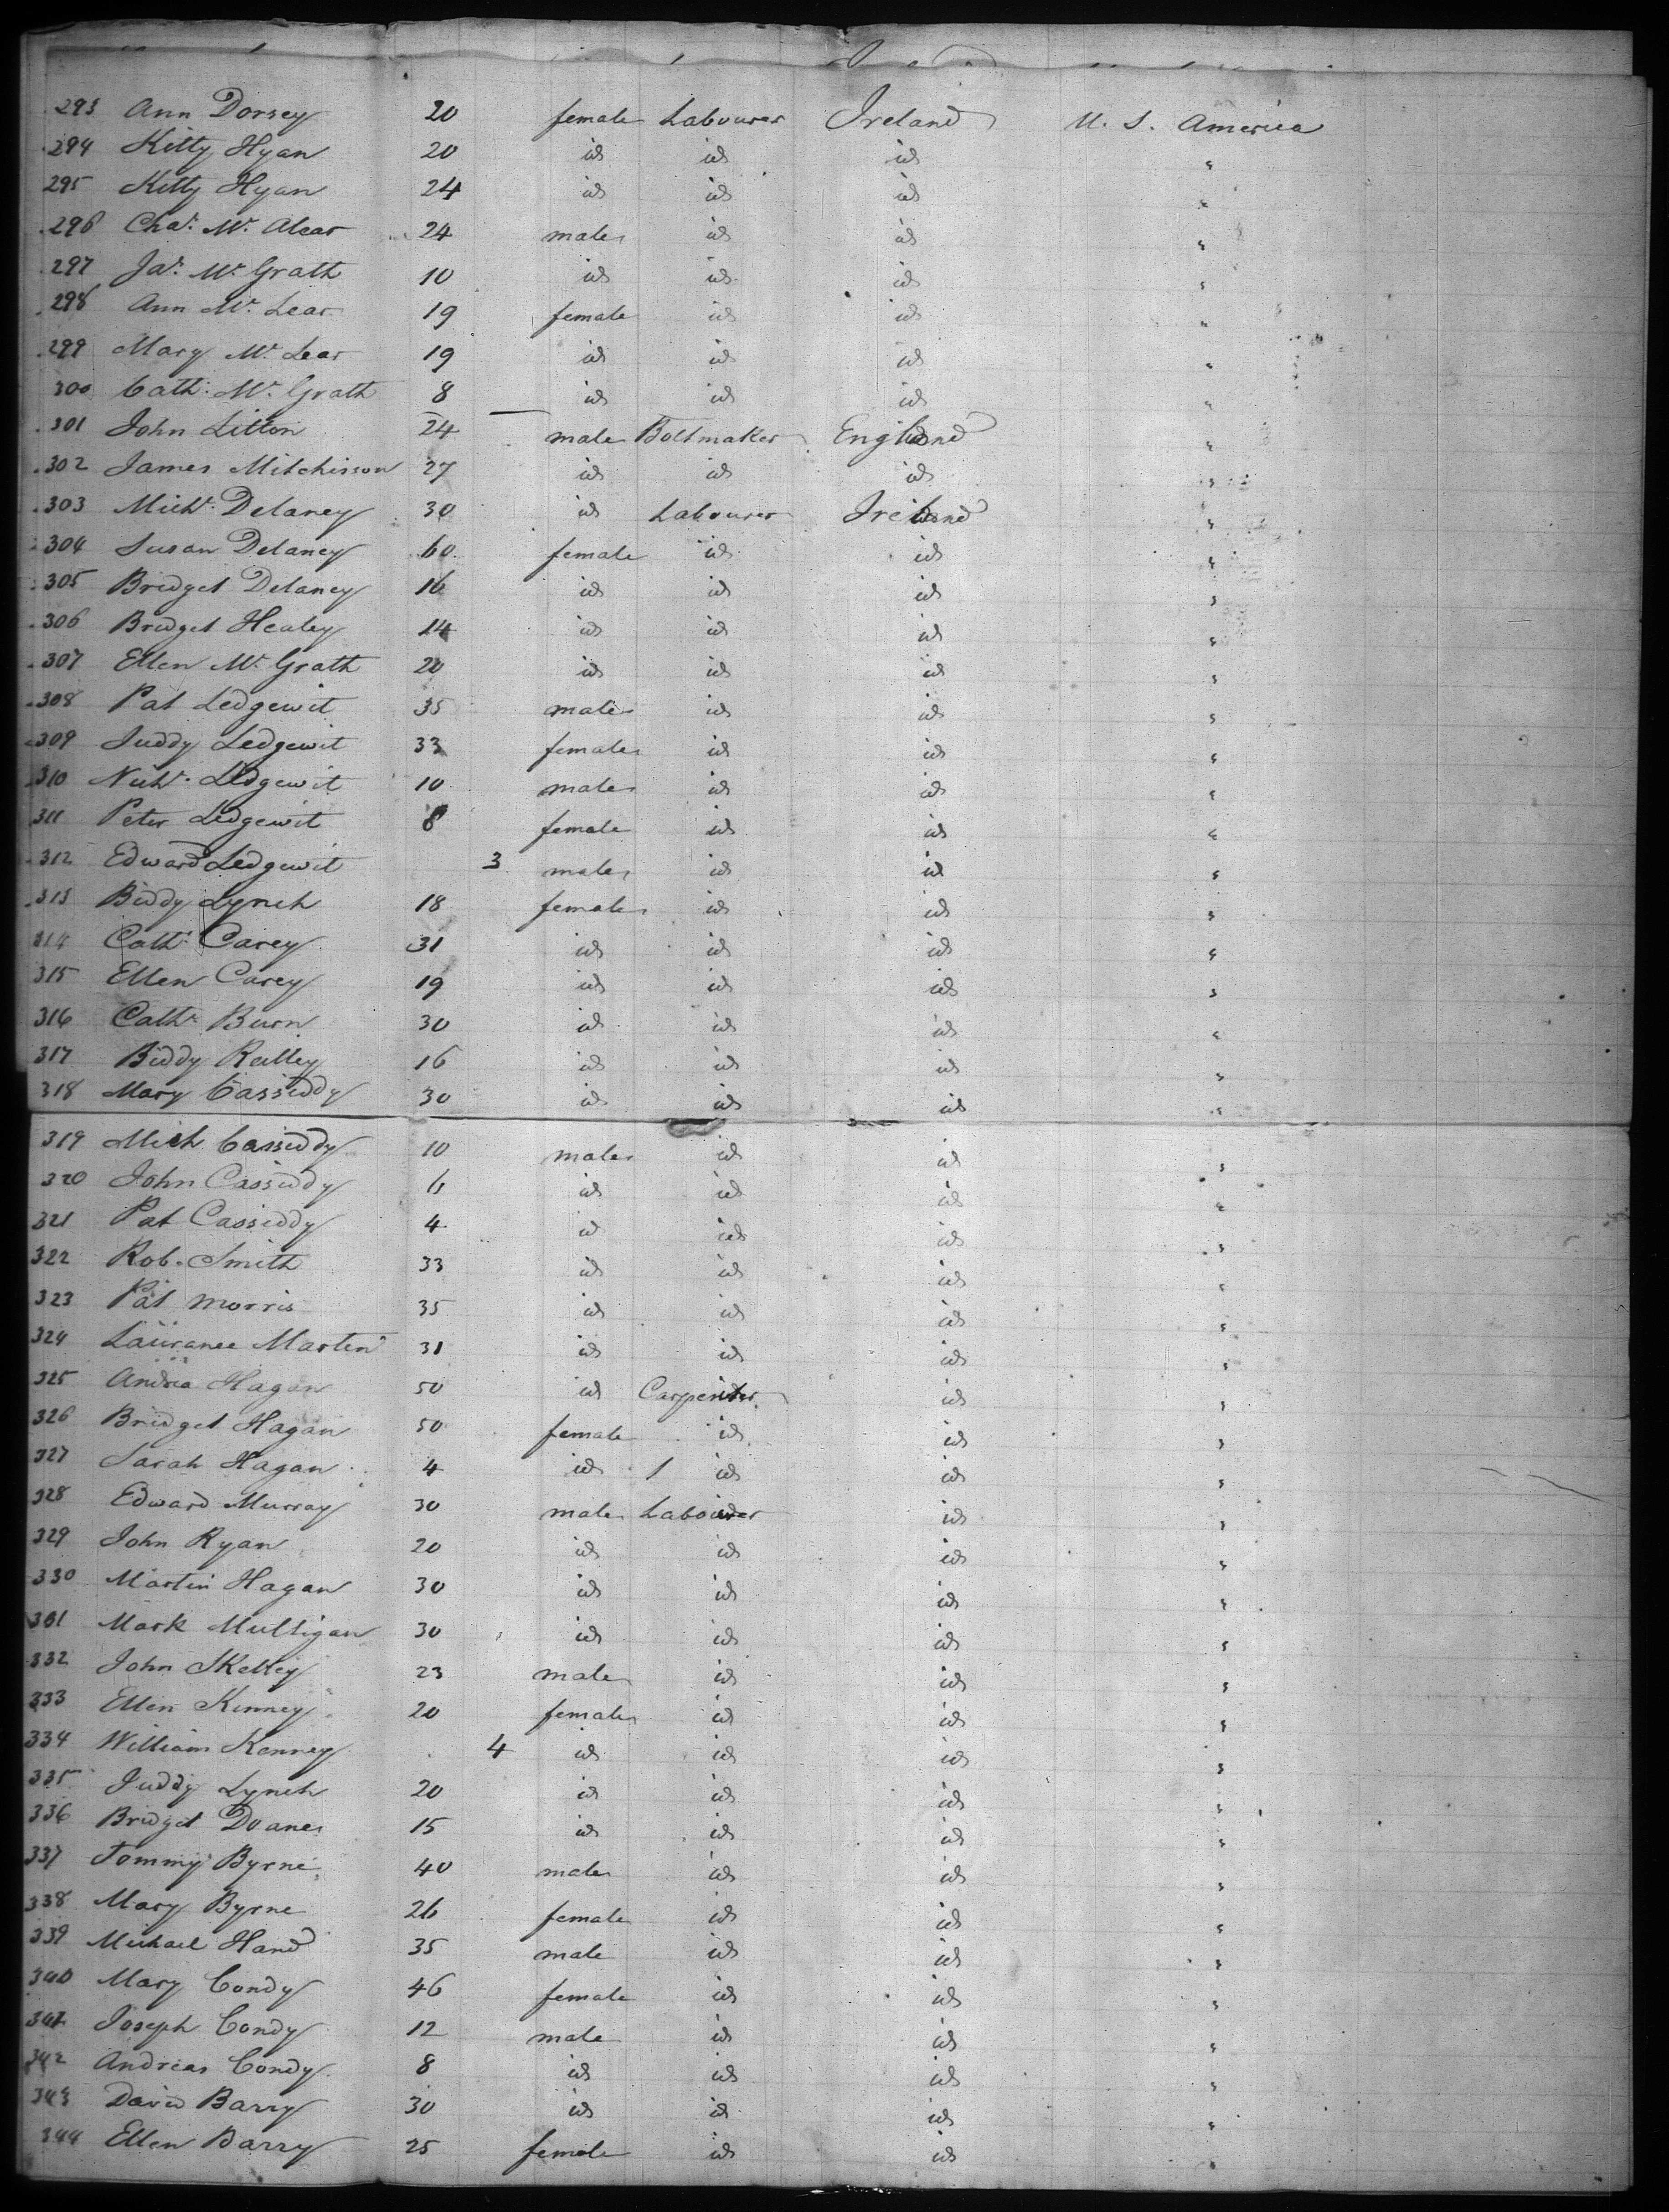 293 Ann Dorsey 20 female Labourer Ireland U. S. America
294 Kitty Hyan 20 id id id "
295 Kitty Hyan 24 id id id "
296 Chas. Mc. Alear 24 male id id "
297 Jas. Mc. Grath 10 id id id "
298 Ann Mc. Lear 19 female id id "
299 Mary Mc. Lear 19 id id id "
300 Cath. Mc. Grath 8 id id id "
301 John Litton 24 male Boltmaker England "
302 James Mitchisson 27 id id id "
303 Michl. Delaney 30 id Labourer Ireland "
304 Susan Delaney 60 female id id "
305 Bridget Delaney 16 id id id "
306 Bridget Healey 14 id id id "
307 Ellen Mc. Grath 20 id id id "
308 Pat Ledgewit 35 male id id "
309 Juddy Ledgewit 33 female id id "
310 Nichs. Ledgewit 10 male id id "
311 Peter Ledgewit 8 female id id "
312 Edward Ledgewit 3 male id id "
313 Biddy Lynch 18 female id id "
314 Cath. Carey 31 id id id "
315 Ellen Carey 19 id id id "
316 Cath. Burn 30 id id id "
317 Biddy Reilley 16 id id id "
318 Mary Cassiddy 30 id id id "
319 Mich Cassiddy 10 male id id "
320 John Cassiddy 6 id id id "
321 Pat Cassiddy 4 id id id "
322 Rob. Smith 33 id id id "
323 Pat Morris 35 id id id "
324 Laurance Martin 31 id id id "
325 Andrea Hagan 50 id Carpenter id "
326 Bridget Hagan 50 female id id "
327 Sarah Hagan 4 id id id "
328 Edward Murray 30 male Labourer id "
329 John Ryan 20 id id id "
330 Martin Hagan 30 id id id "
331 Mark Mulligan 30 id id id "
332 John Skelley 23 male id id "
333 Ellen Kinney 20 female id id "
334 William Kenney 4 id id id "
335 Juddy Lynch 20 id id id "
336 Bridget Doane 15 id id id "
337 Tommy Byrne 40 male id id "
338 Mary Byrne 26 female id id "
339 Michael Hand 35 male id id "
340 Mary Condy 46 female id id "
341 Joseph Condy 12 male id id "
342 Andreas Condy 8 id id id "
343 David Barry 30 id id id "
344 Ellen Barry 25 female id id "